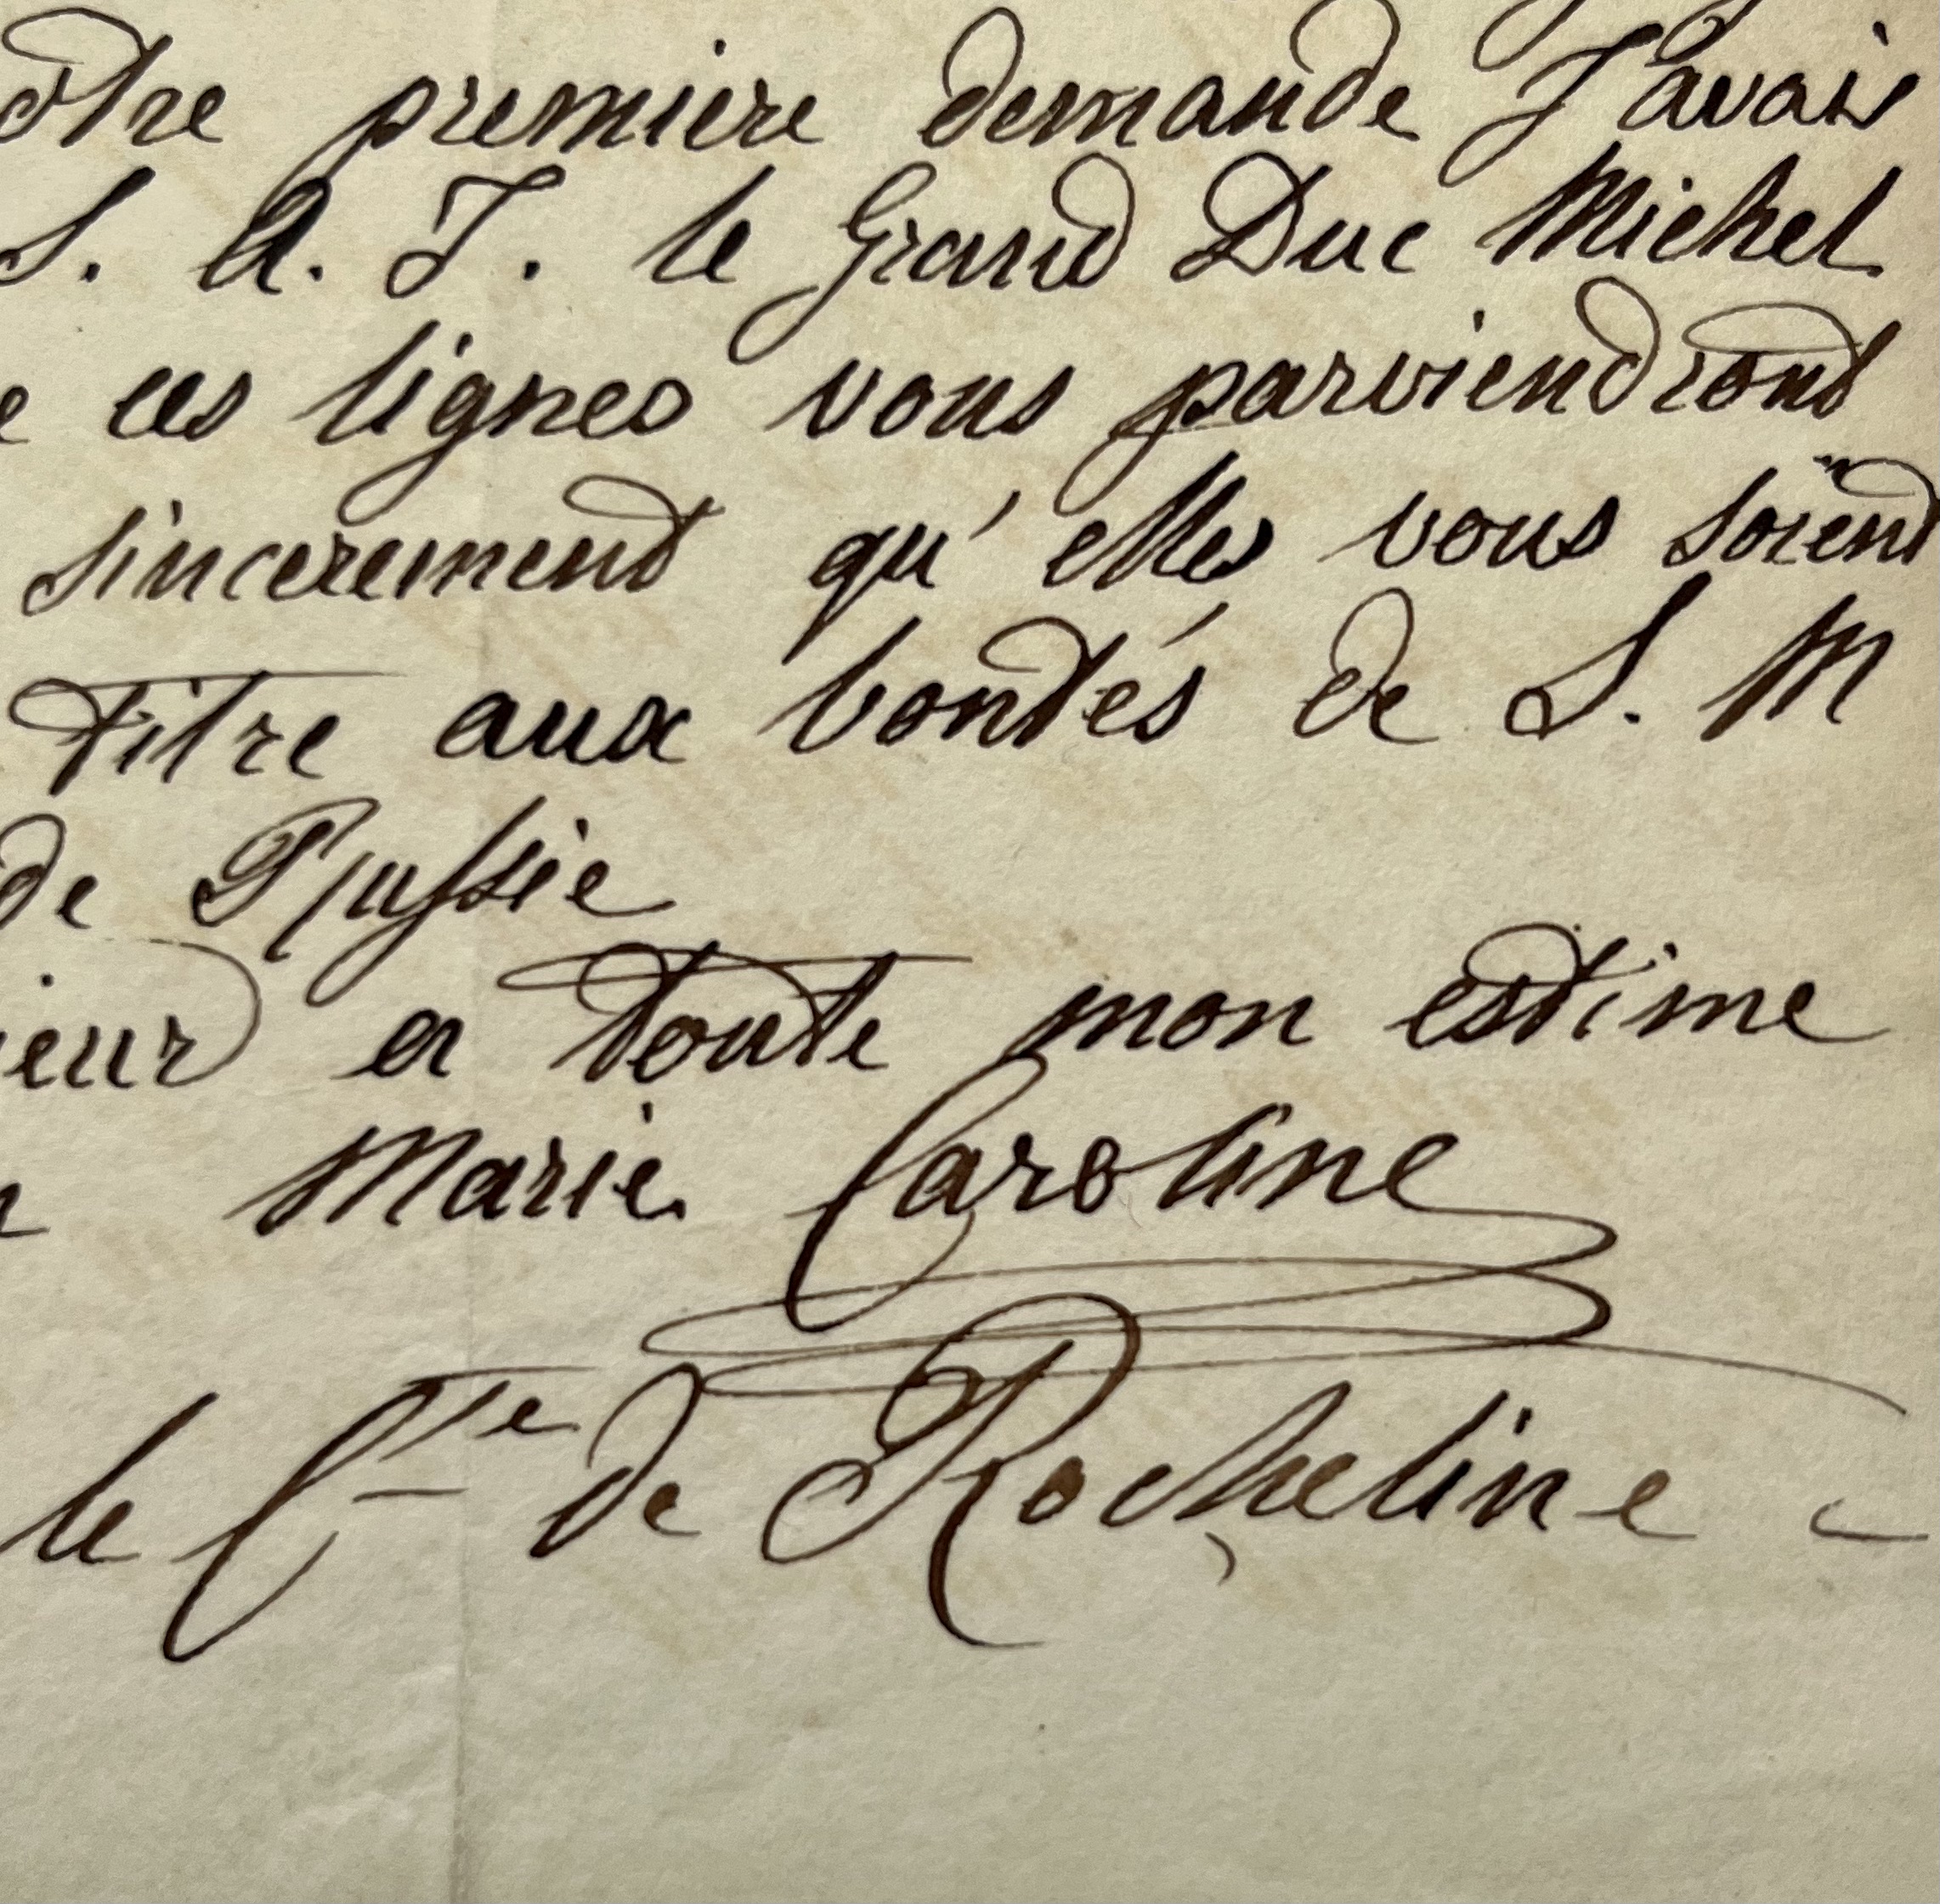 otre premiere demande J'avais
S. A. J. le Grand Duc Michel
e ces lignes vous parviendront
sincerement qu'elles vous soient
Titre aux bontés de S. M
de Russie
ieur a toute mon estime
Marie Caroline
le Cte de Rocheline